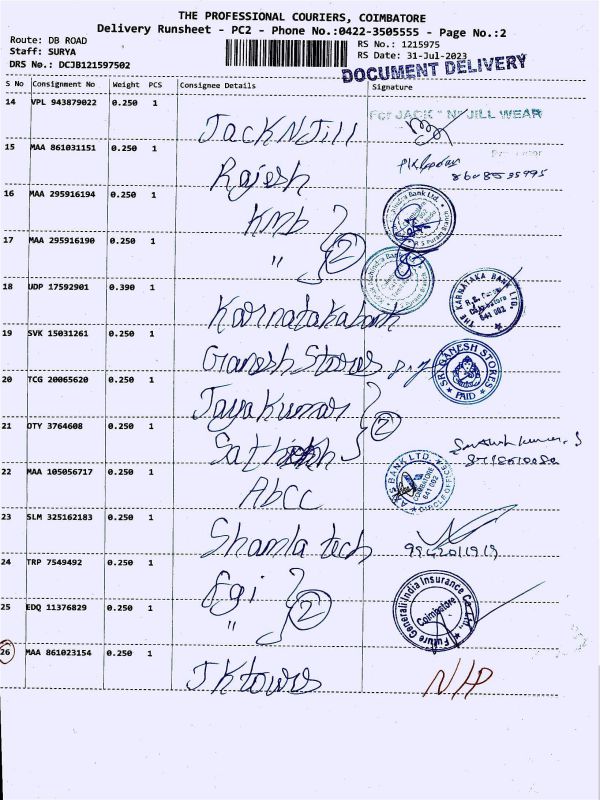 THE PROFESSIONAL COURIERS, COIMBATORE
Delivery Runsheet - PC2 - Phone No.:0422-3505555 - Page No.:2
Route: DB ROAD
Staff: SURYA
DRS No.: DCJB121597502
RS No.: 1215975
RS Date: 31-Jul-2023
DOCUMENT DELIVERY
S No Consignment No Weight PCS Consignee Details Signature
14 VPL 943879022 0.250 1 Jack N Jill For JACK "N" JILL WEAR
15 MAA 861031151 0.250 1 Rajesh
16 MAA 295916194 0.250 1 KMB
17 MAA 295916190 0.250 1 " 2
18 UDP 17592901 0.390 1 Karnataka bank THE KARNATAKA BANK LTD. Coimbatore 641 002
19 SVK 15031261 0.250 1 Ganesh Stores SRI GANESH STORES PAID
20 TCG 20065620 0.250 1 Jaya Kumar
21 OTY 3764608 0.250 1 Sathish 2
22 MAA 105056717 0.250 1 Abcc BANK LTD. COIMBATORE 641 002 CIRCLE OFFICE
23 SLM 325162183 0.250 1 Shamla tech
24 TRP 7549492 0.250 1 Fgi
25 EDQ 11376829 0.250 1 " 2 Future Generali India Insurance Co. Ltd. Coimbatore
26 MAA 861023154 0.250 1 JK towrs N/P